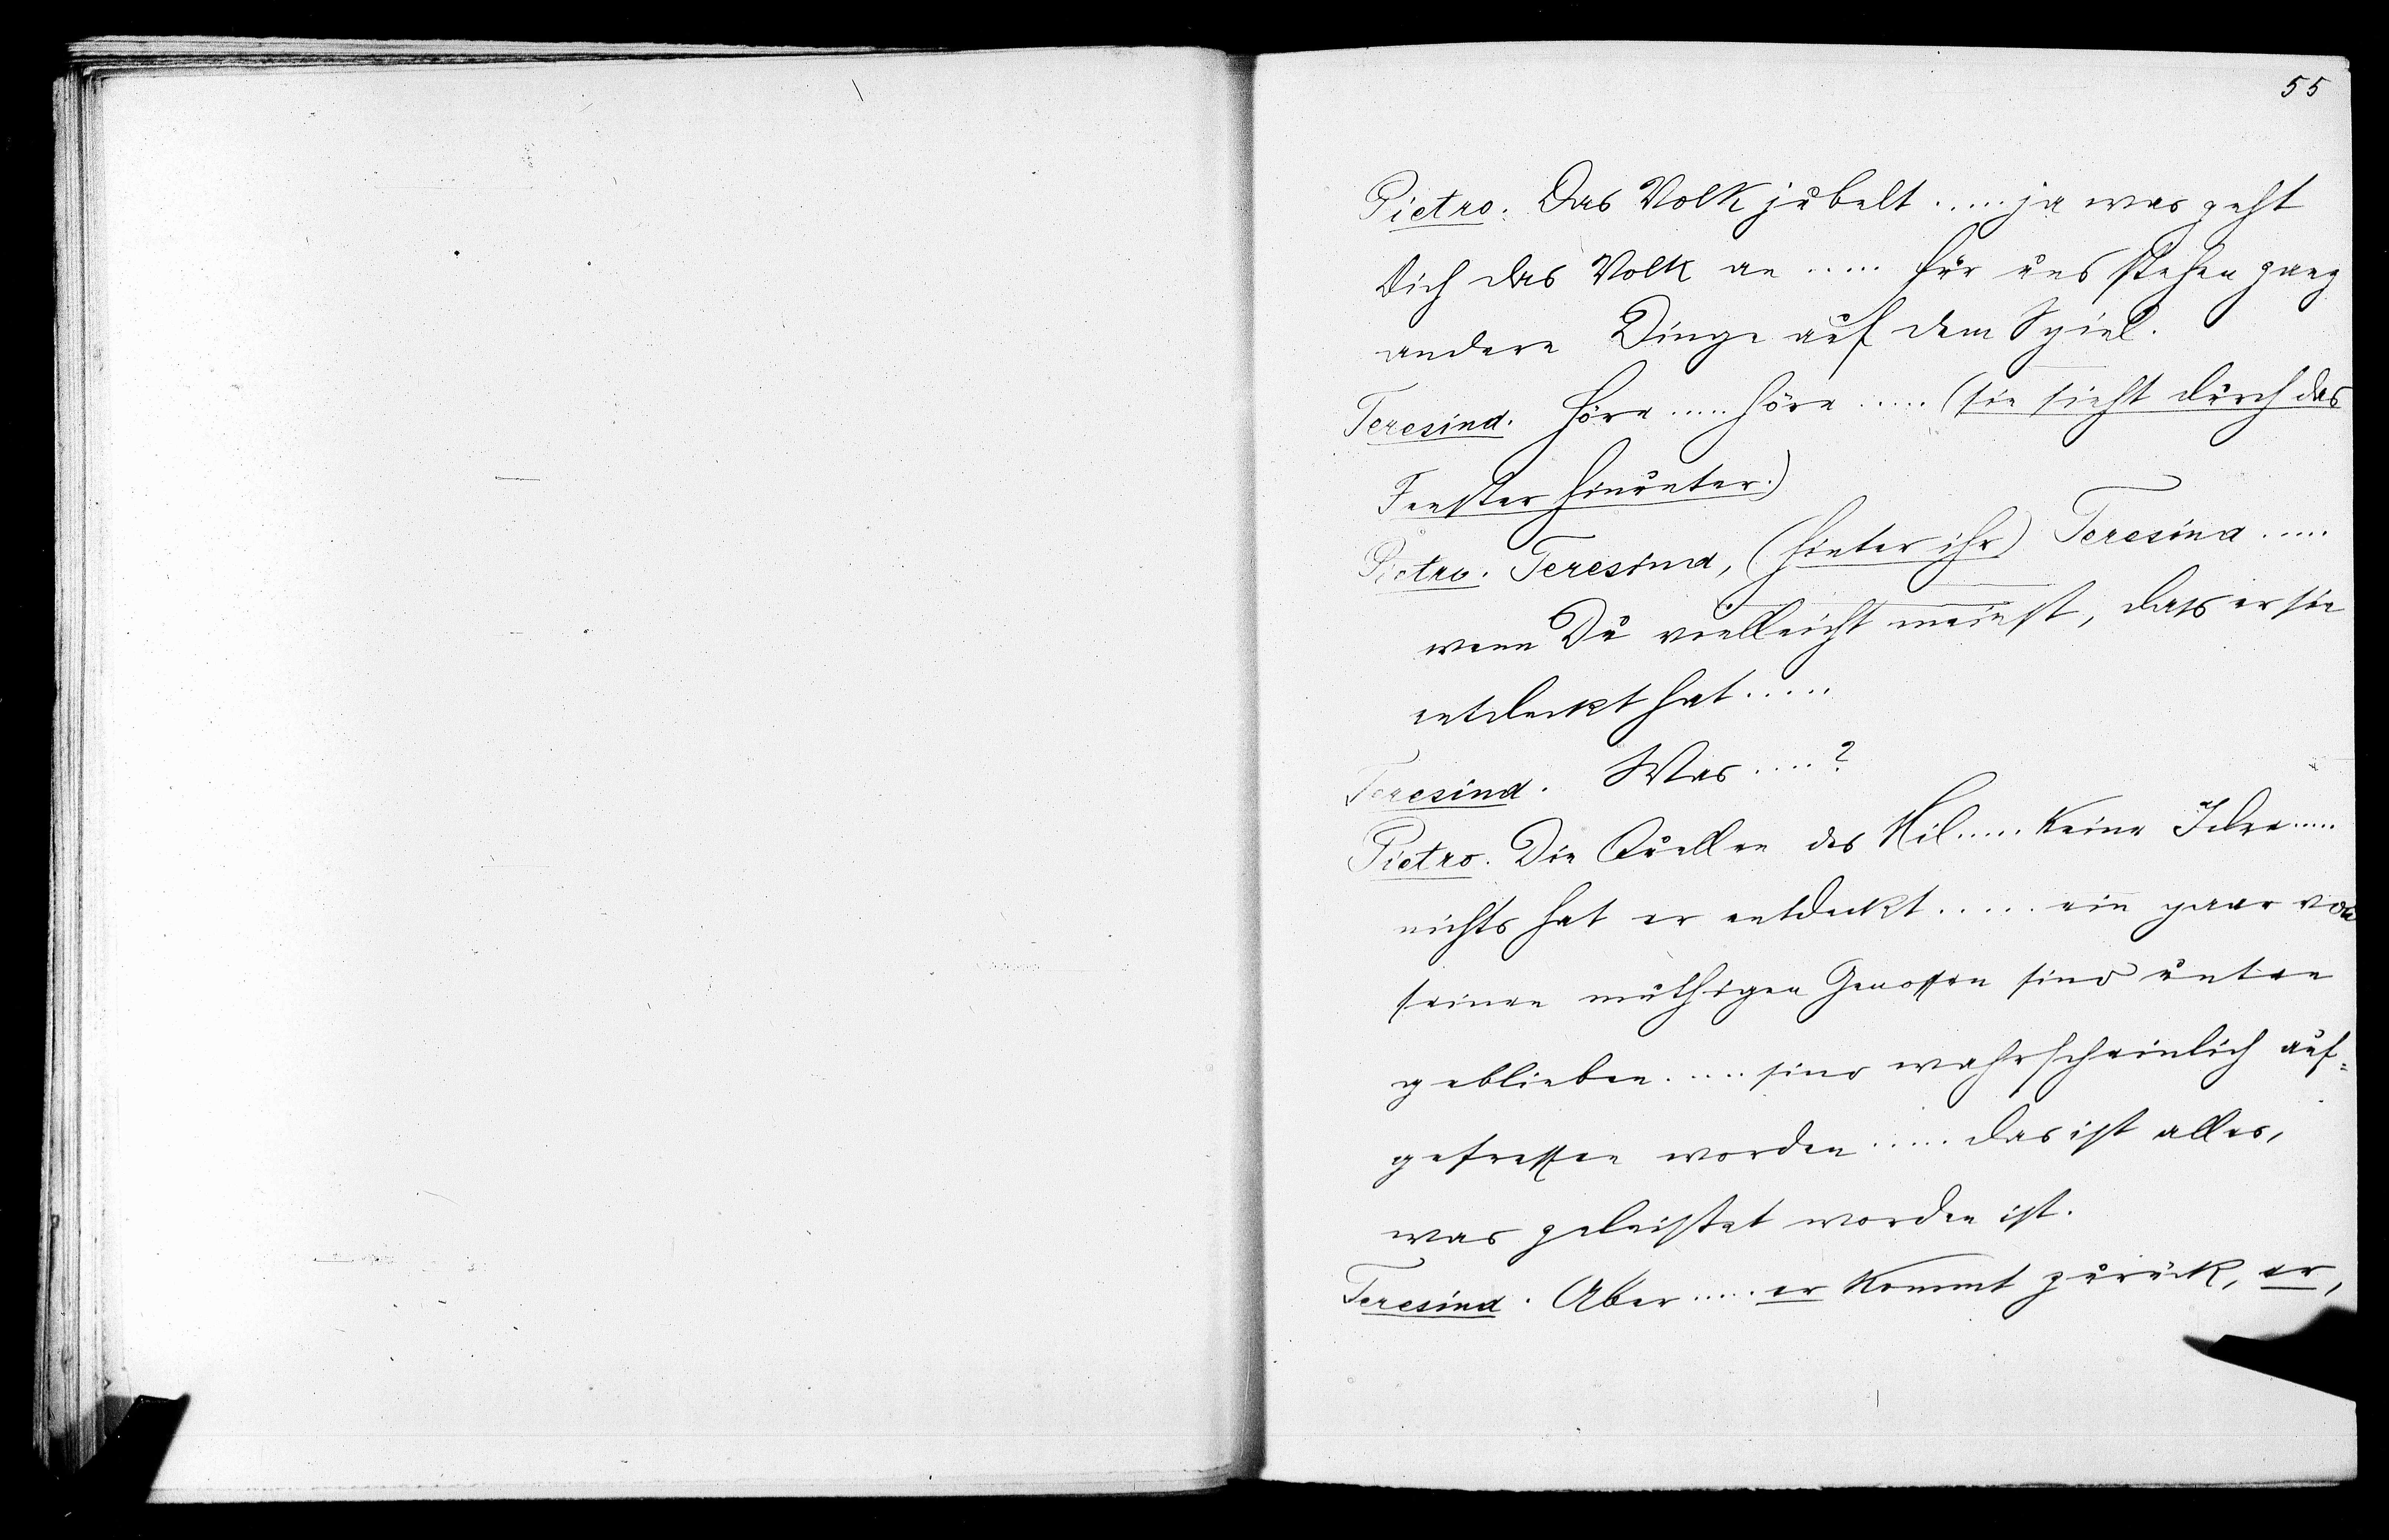 55
Pietro. Das Volk jubelt ..... ja was geht
Dich das Volk an ..... für uns stehen ganz
andere Dinge auf dem Spiel.
Teresina. Höre ..... höre ..... (sie sieht durch das
Fenster hinunter.)
Pietro. Teresina, (hinter ihr) Teresina .....
wenn Du vielleicht meinst, dass er sie
entdeckt hat .....
Teresina. Was ....?
Pietro. Die Quellen des Nil ..... Keine Idee .....
nichts hat er entdeckt ..... ein paar von
seinen muthigen Genossen sind unten
geblieben ..... sind wahrscheinlich auf=
gefressen worden ..... das ist alles,
was geleistet worden ist.
Teresina. Aber ..... er kommt zurück, er,